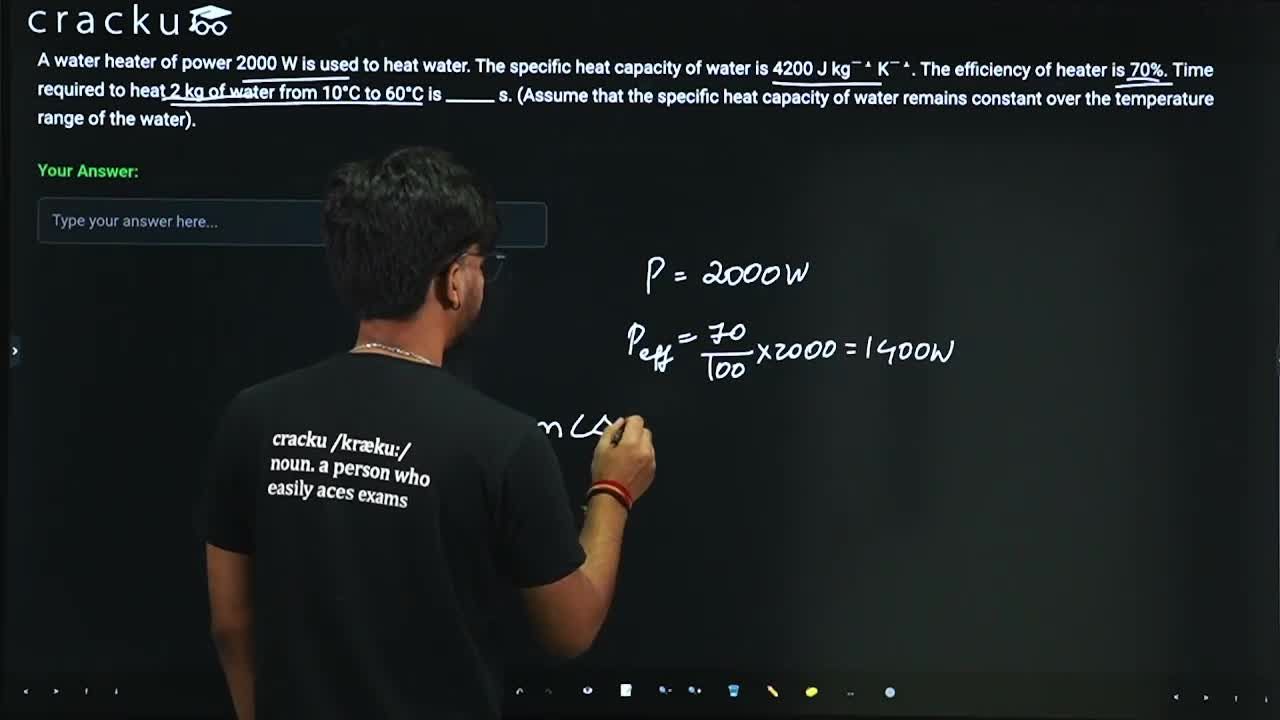 cracku
A water heater of power 2000 W is used to heat water. The specific heat capacity of water is 4200 J kg⁻¹ K⁻¹. The efficiency of heater is 70%. Time
required to heat 2 kg of water from 10°C to 60°C is _____ s. (Assume that the specific heat capacity of water remains constant over the temperature
range of the water).
Your Answer:
Type your answer here...
P = 2000W
P_eff = 70/100 × 2000 = 1400W
mCΔ
cracku /kræku:/
noun. a person who
easily aces exams